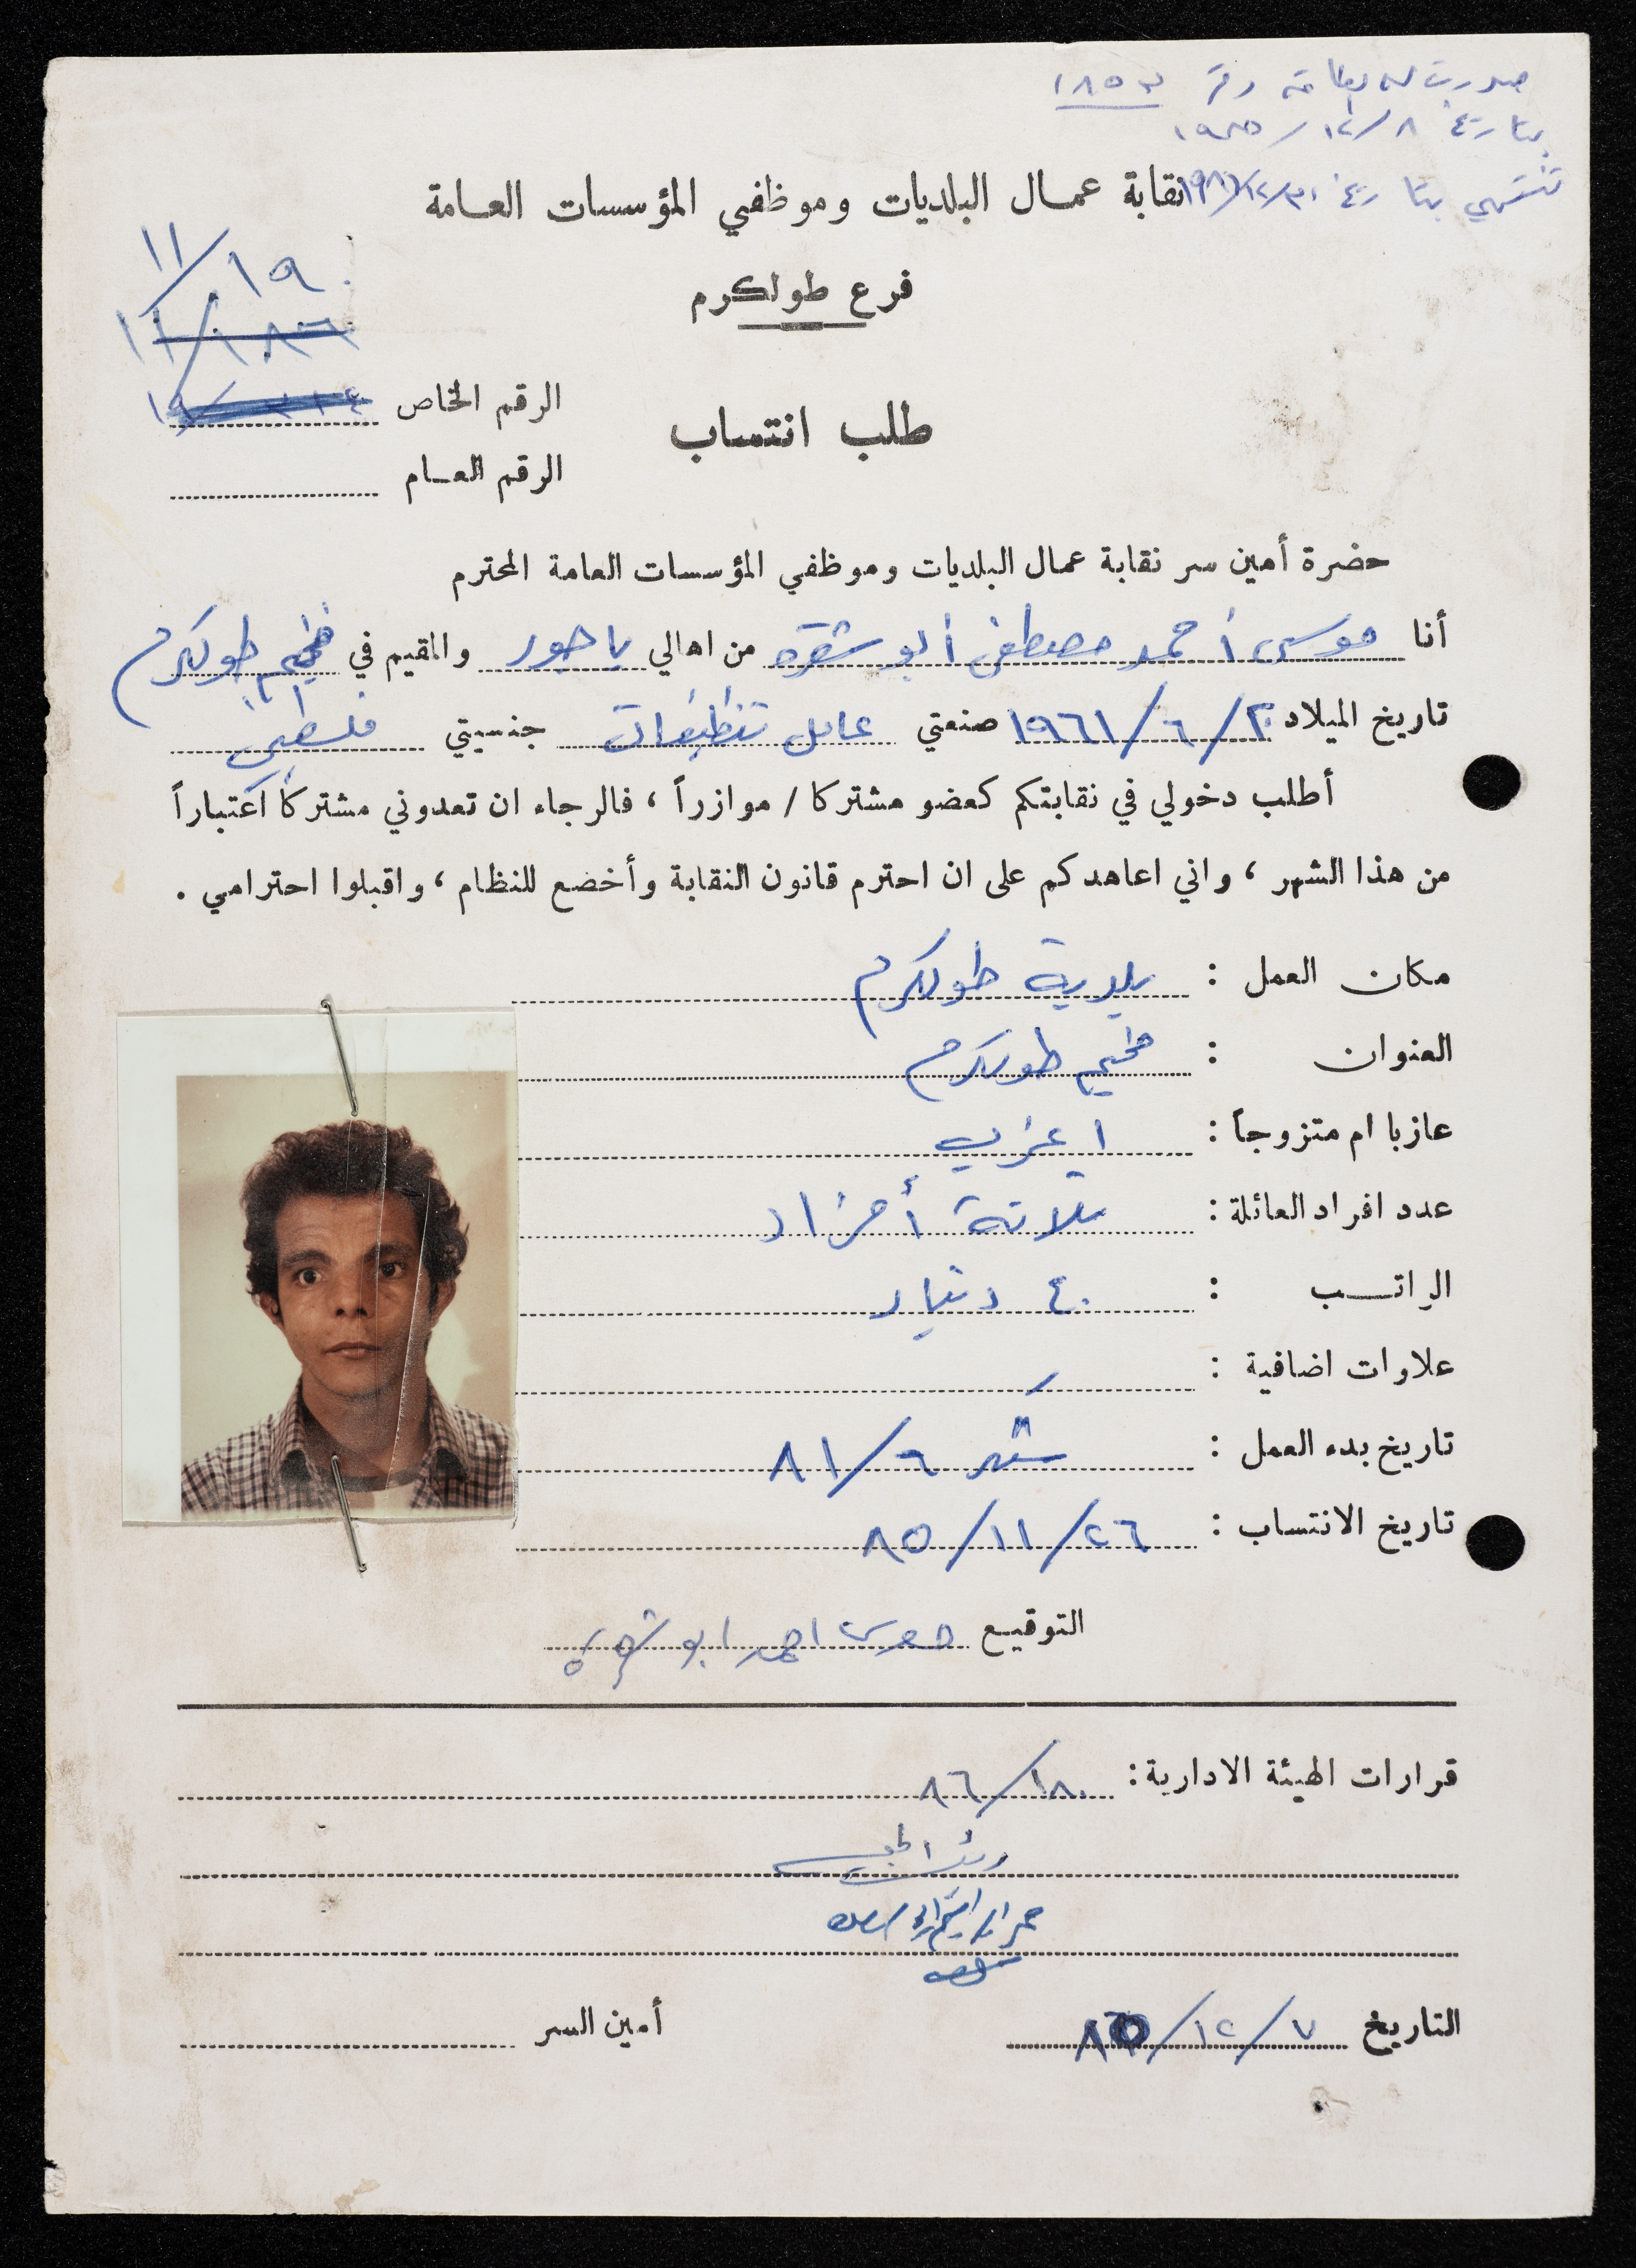 صدرت له بطاقة رقم ١٨٥٣
بتاريخ ٨/١٢/١٩٨٥
تنتهي بتاريخ ٣١/١٢/
نقابة عمال البلديات وموظفي المؤسسات العامة
فرع طولكرم
١١/١٩٠
١١/١٨٦
الرقم الخاص
طلب انتساب
الرقم العام
حضرة أمين سر نقابة عمال البلديات وموظفي المؤسسات العامة المحترم
أنا موسى أحمد مصطفى أبو شقره من اهالي ياحور والمقيم في مخيم طولكرم
تاريخ الميلاد ٢/٦/١٩٦١ صنعتي عامل تنظيفات جنسيتي فلسطيني
أطلب دخولي في نقابتكم كعضو مشتركا / موازراً ، فالرجاء ان تعدوني مشتركاً اعتباراً
من هذا الشهر ، واني اعاهدكم على ان احترم قانون النقابة وأخضع للنظام ، واقبلوا احترامي .
مكان العمل : بلدية طولكرم
العنوان : مخيم طولكرم
عازبا ام متزوجاً : اعزب
عدد افراد العائلة : ثلاثة أفراد
الراتب : ٤٠ دينار
علاوات اضافية :
تاريخ بدء العمل : شهر ٦/٨١
تاريخ الانتساب : ٢٦/١١/٨٥
التوقيع موسى احمد ابو شقره
قرارات الهيئة الادارية :
التاريخ ٧/١٢/٨٥
أمين السر